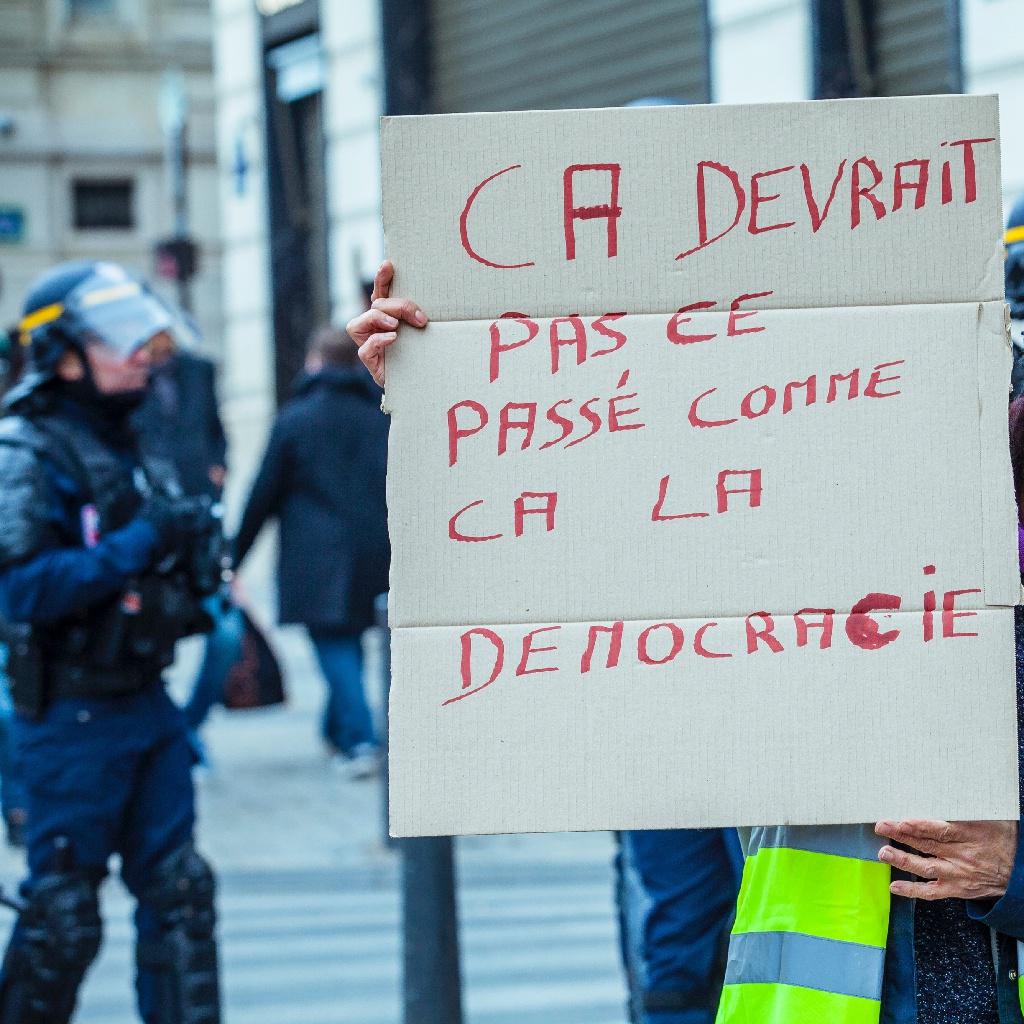 CA DEVRAiT
PAS CE
PASSÉ COMME
CA LA
DEMOCRACiE